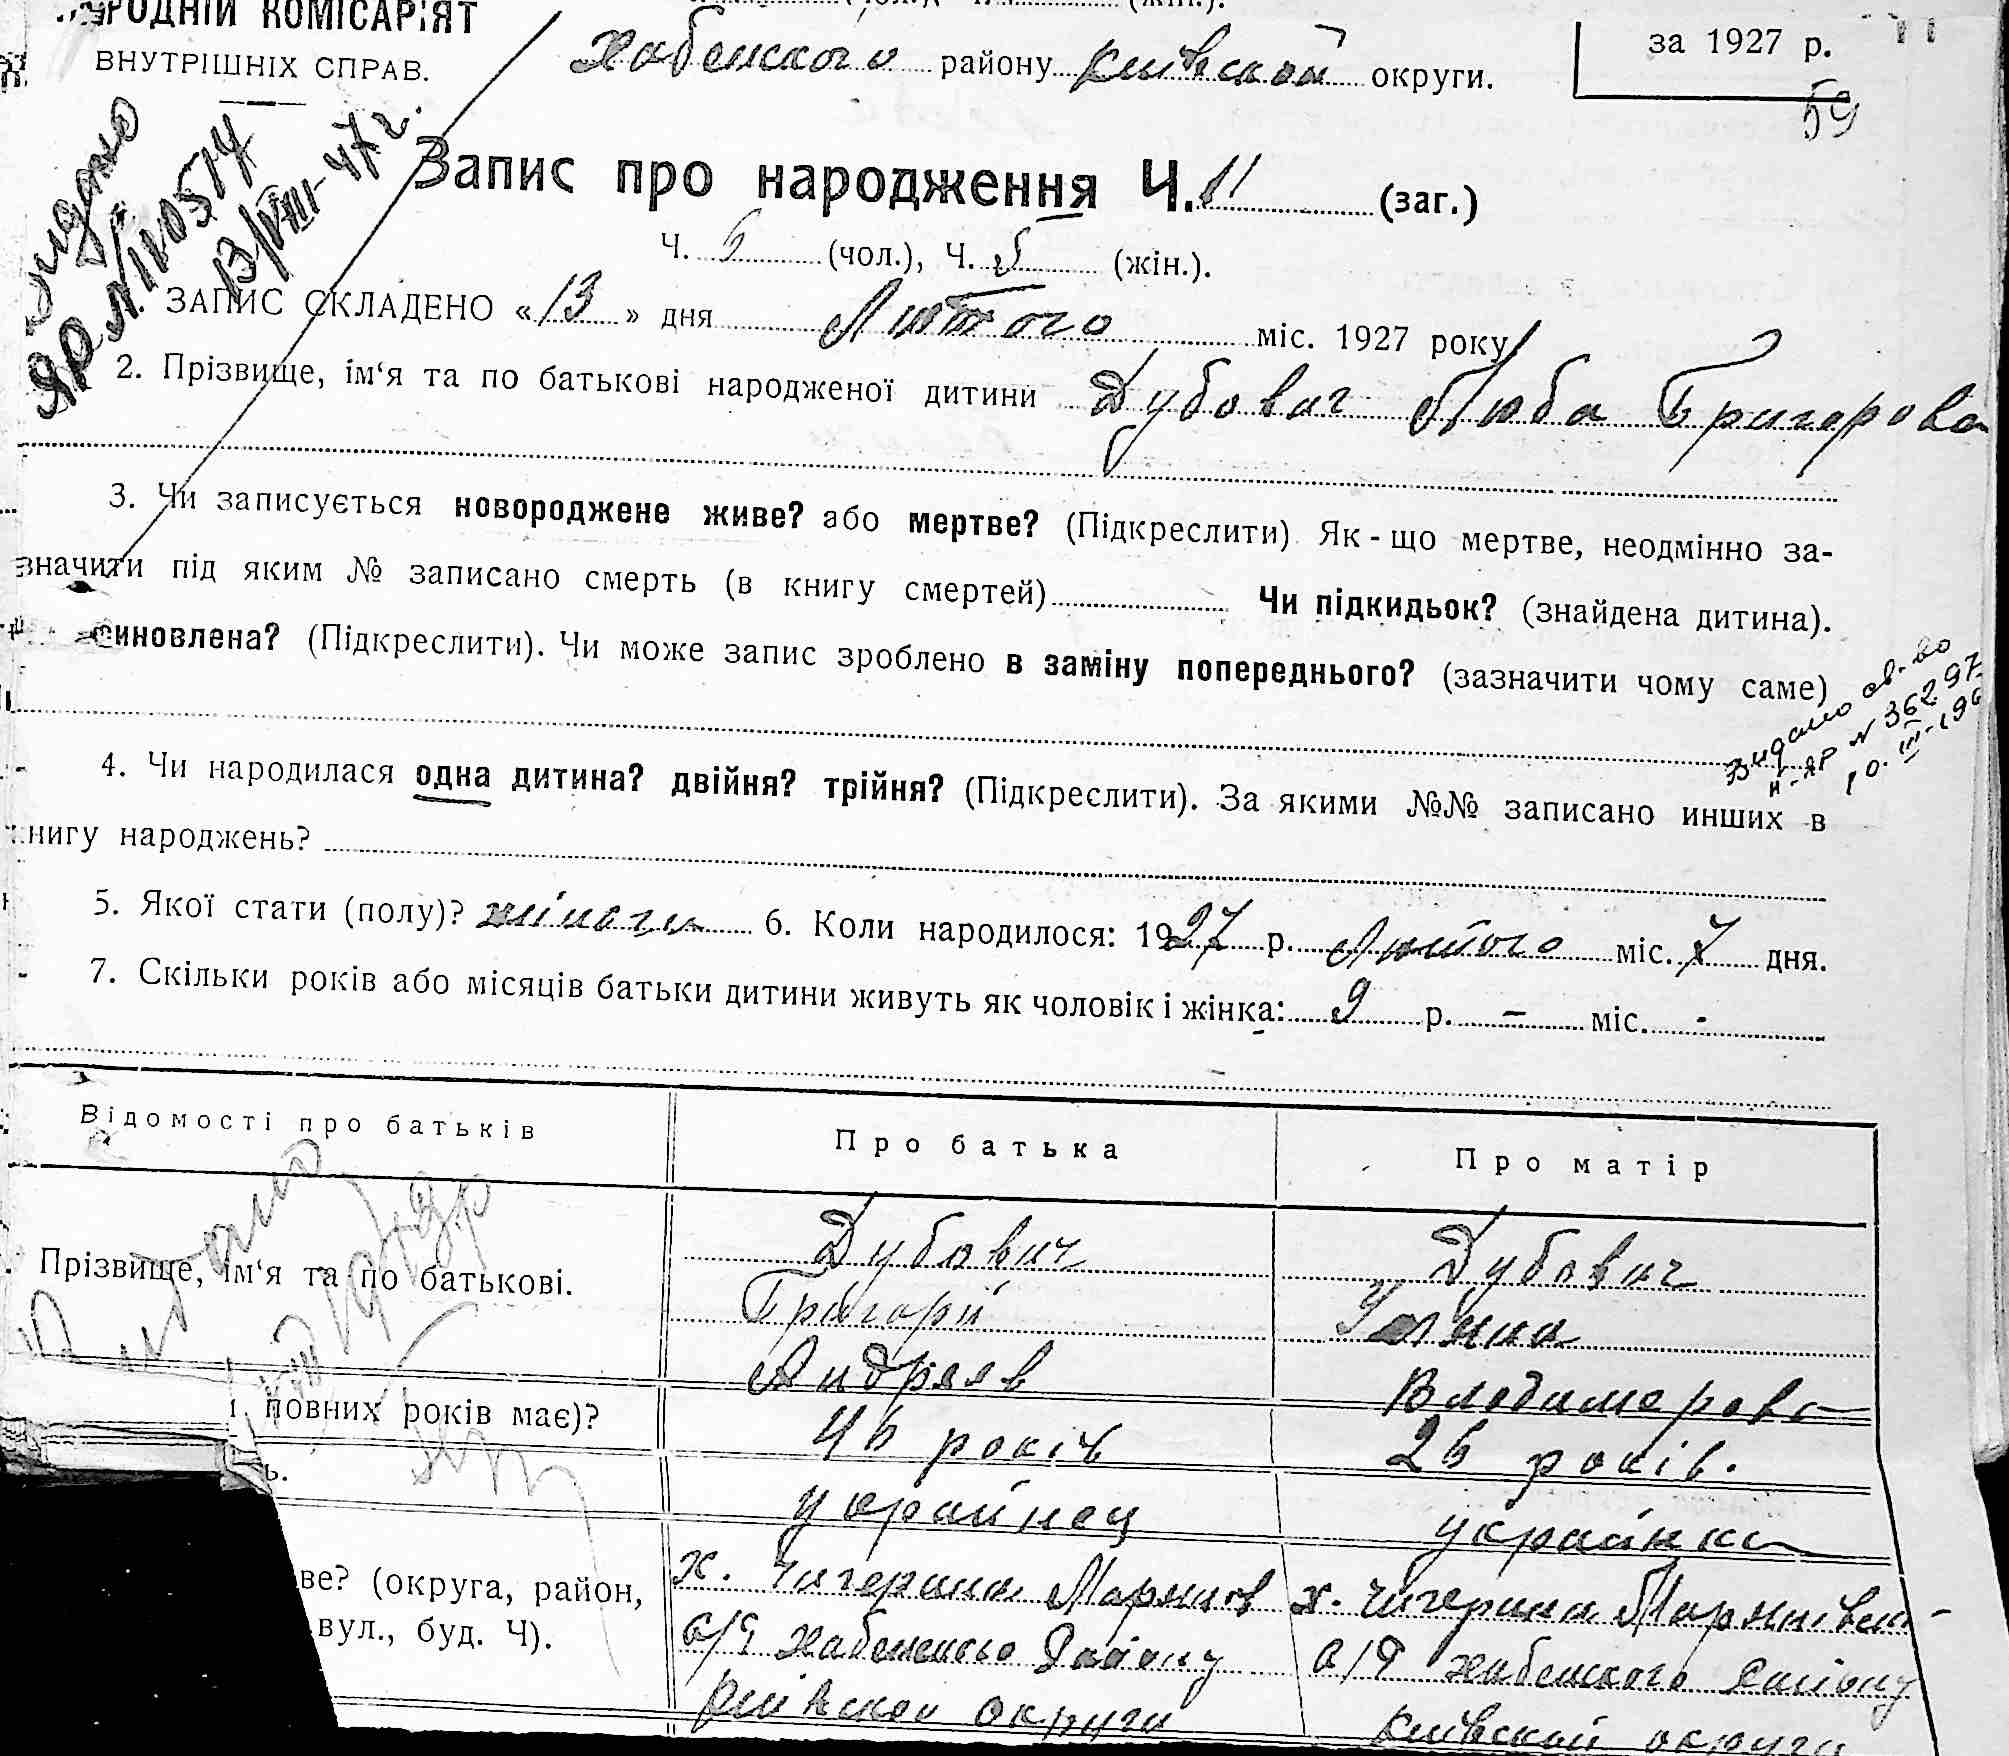 НАРОДНІЙ КОМІСАРІЯТ
ВНУТРІШНІХ СПРАВ.
Хабенского району Київской округи.
за 1927 р.
59
Запис про народження Ч. 11 (заг.)
Ч. 6 (чол.), Ч. 5 (жін.).
Видано
ЯР № 110514
13/VIII-47 г.
1. ЗАПИС СКЛАДЕНО «13» дня Лютого міс. 1927 року
2. Прізвище, ім'я та по батькові народженої дитини Дубович Люба Григорова
3. Чи записується новороджене живе? або мертве? (Підкреслити) Як-що мертве, неодмінно за-
значити під яким № записано смерть (в книгу смертей) Чи підкидьок? (знайдена дитина).
синовлена? (Підкреслити). Чи може запис зроблено в заміну попереднього? (зазначити чому саме)
Видано св-во
II-ЯР N 36297
10.III-196
4. Чи народилася одна дитина? двійня? трійня? (Підкреслити). За якими №№ записано инших в
книгу народжень?
5. Якої стати (полу)? жіночи 6. Коли народилося: 1927 р. Лютого міс. 7 дня.
7. Скільки років або місяців батьки дитини живуть як чоловік і жінка: 9 р. - міс. -
Відомості про батьків Про батька Про матір
Прізвище, ім'я та по батькові.
Дубович Дубович
Григорій Уляна
Андряяв Владимерова
повних років має)? 46 років 26 років.
ь. украйнец украйнка
ве? (округа, район, х. Чигерина Марянов х. Чигерина Марянівск-
вул., буд. Ч). с/р Хабенського Району с/р Хабенского Району
Київскої округи Київской округи